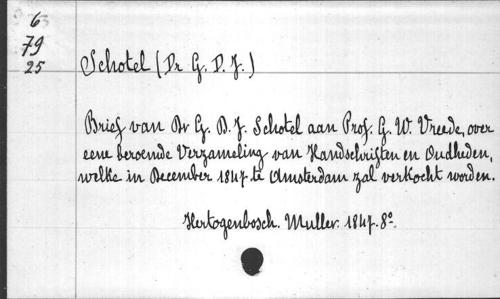 6
79
25
Schotel (Dr G. D. J.)
Brief van Dr G. D. J. Schotel aan Prof. G. W. Vreede, over
eene beroemde Verzameling van Handschriften en Oudheden,
welke in December 1847 te Amsterdam zal verkocht worden.
Hertogenbosch. Muller. 1847. 8º.